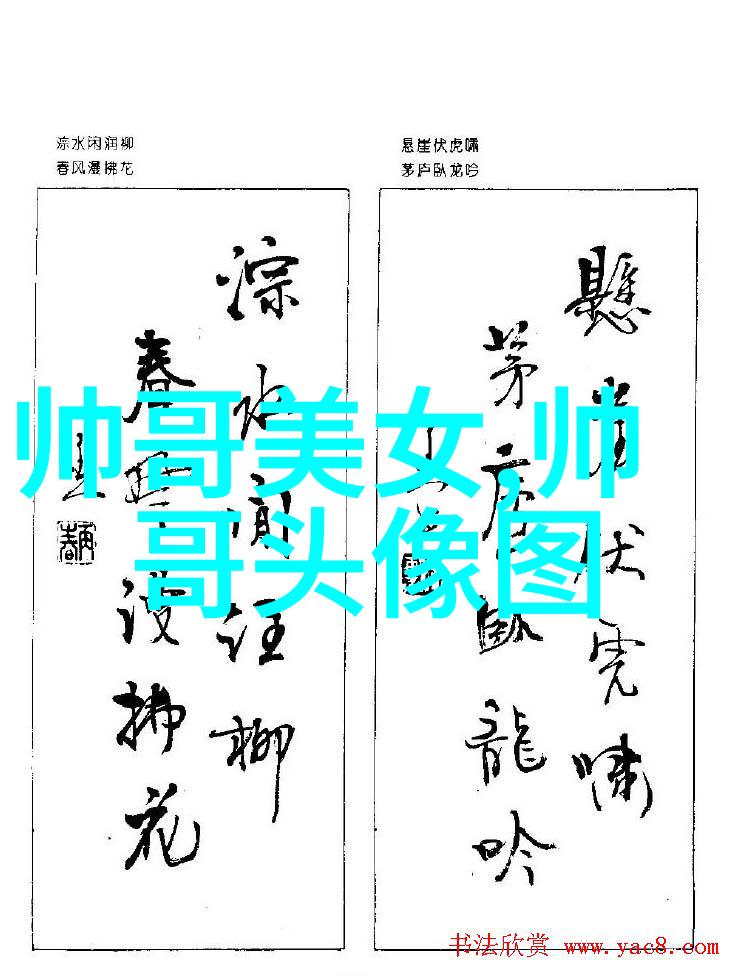 淙水闲润柳
春风漫拂花
悬崖伏虎啸
茅庐卧龙吟
淙水闲注柳
春风漫拂花
懸崖伏虎嘯
茅庐卧龍吟
帅哥美女,帅
哥头像图
书法欣赏 www.yac8.com